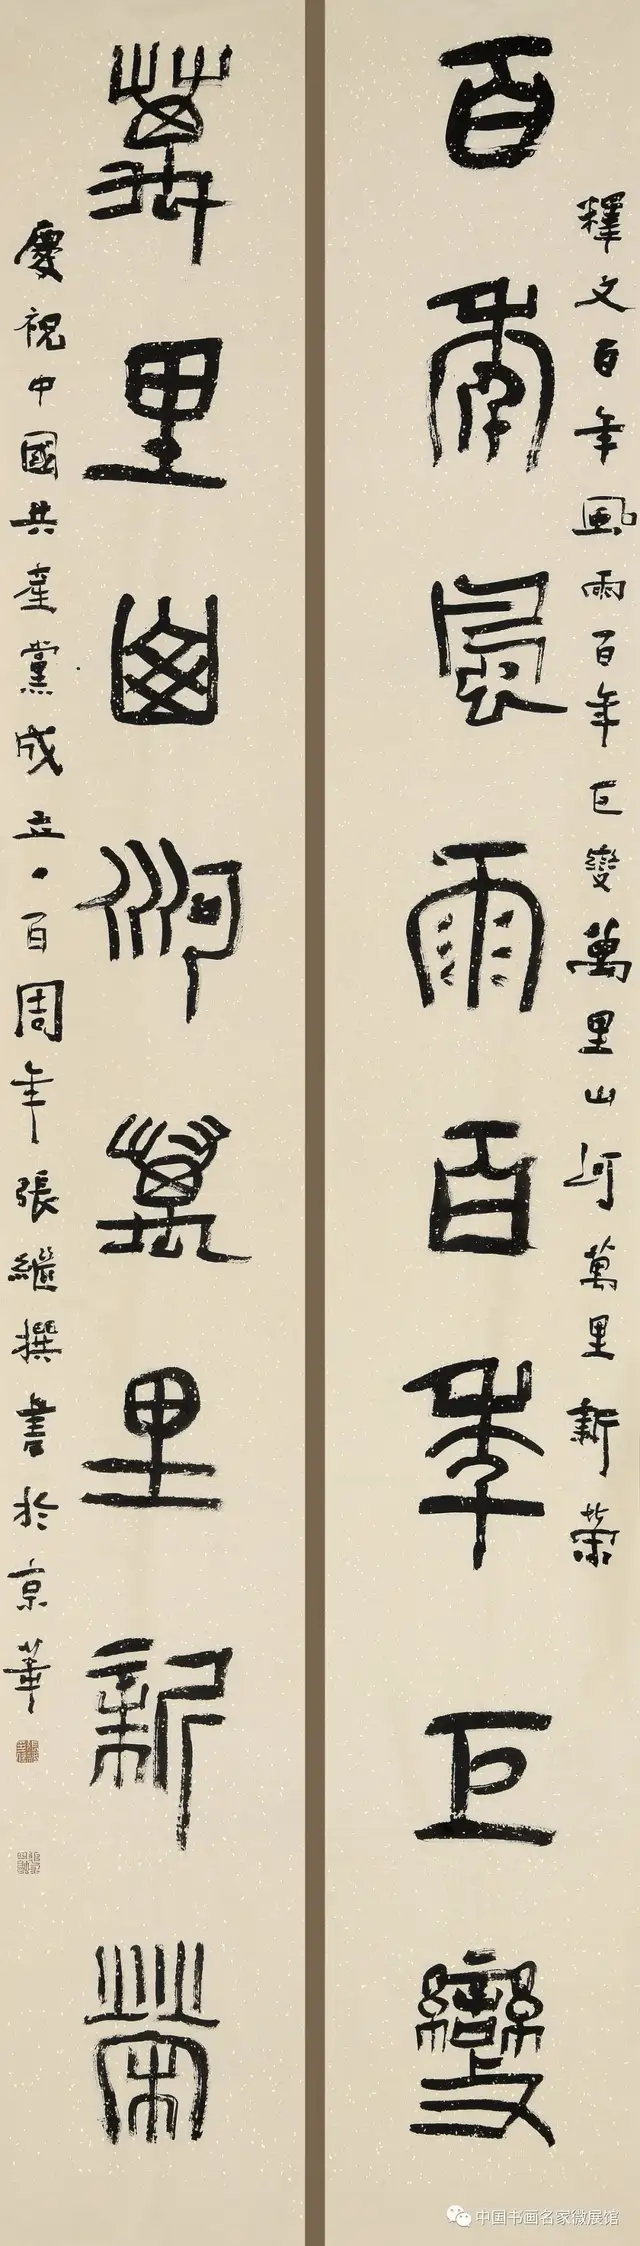 釋文百年風雨百年巨變萬里山河萬里新榮
百年風雨百年巨變
萬里山河萬里新榮
慶祝中國共產黨成立一百周年張繼撰書於京華
中国书画名家微展馆